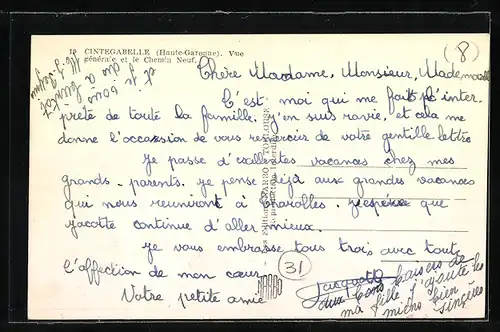 19 CINTEGABELLE (Haute-Garonne). Vue
générale et le Chemin Neuf.
(P)
et je
vous
dis à
bientôt
Chère Madame, Monsieur, Mademoiselle
C'est moi qui me fait l'inter.
prète de toute la famille. J'en suis ravie, et cela me
donne l'occasion de vous remercier de votre gentille lettre
Je passe d'excellentes vacances chez mes
grands-parents. Je pense déjà aux grandes vacances
qui nous réuniront à Charolles. J'espère que
Jacotte continue d'aller mieux.
Je vous embrasse tous trois, avec toute
l'affection de mon cœur.
Votre petite amie
(31)
Jacquette
aux bons baisers de
ma fille j'ajoute les
miens bien
sincères
Les Editions
TOULOUSE